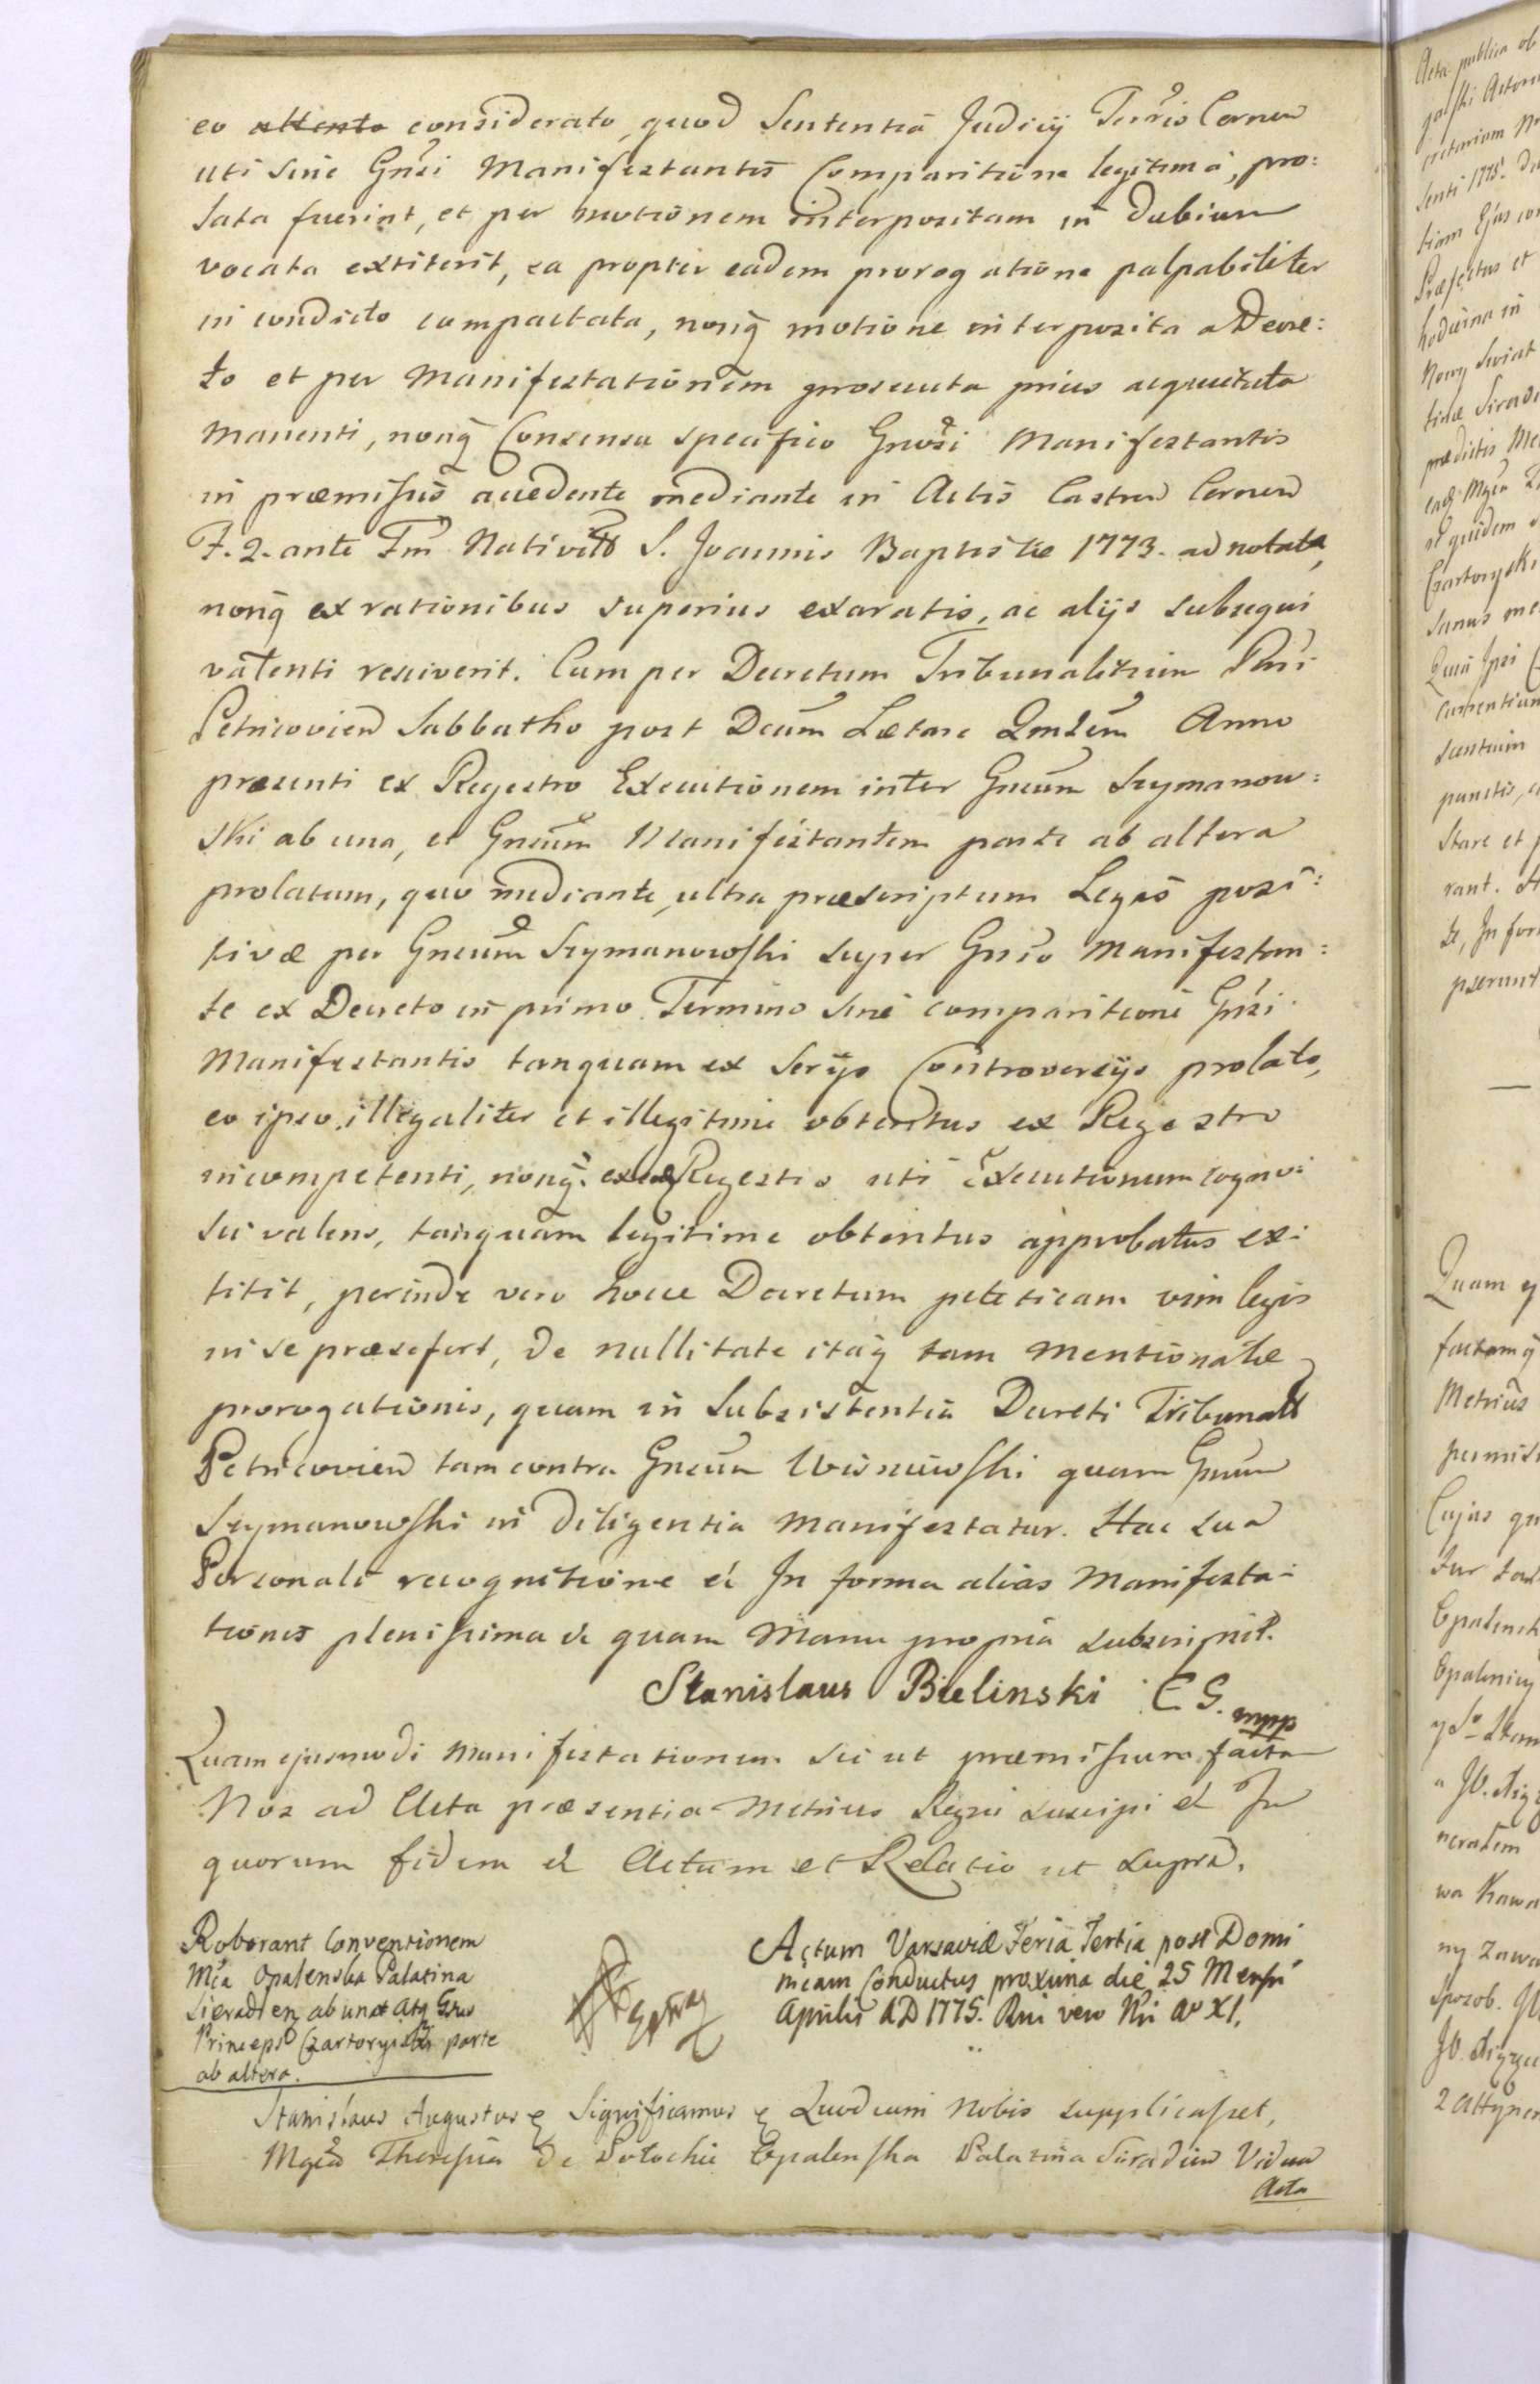 eo attento considerato, quod Sententia Judicij Terris Cernen
uti sine Gnsi Manifestantis Comparitione legitima, pro:
lata fuerint, et per motionem interpositam in dubium
vocata extiterit, ea propter eadem prorogatione palpabiliter
in condicto compactata, nonq̃ motione interposita a Decre:
to et per Manifestationem prosecuta prius acquietata
manenti, nonq̃ Consensu specifico Gnosi Manifestantis
in præmissis accedente mediante in Actis Castren Cernen
F. 2. ante Fm Nativitt S. Joannis Baptistæ 1773. adnotata,
nonq̃ ex rationibus superius exaratis, ac alijs subsequi
valenti resciverit. Cum per Decretum Tribunalitium
Petricovien Sabbatho post Dcum Lætare Qmlem Anno
præsenti ex Regestro Executionem inter Gneum Szymanow:
ski ab una, et Gneum Manifestantem parte ab altera
prolatum, quo mediante, ultra præscriptum Legis posi:
tivæ per Gneum Szymanowski super Gnso Manifestan:
te ex Decreto in primo Termino sine comparitione Gnsi
Manifestantis tanquam ex Serijs Controversijs prolato,
eo ipso illegaliter et illegitime obtentus ex Regestro
incompetenti, nonq̃ ex Regestro uti Executionum cogno:
sci valens, tanquam legitime obtentus approbatus ex:
titit, perinde vero hocce Decretum peteticam vim legis
in se præsefert, de nullitate itaq̃ tam mentionatæ
prorogationis, quam in Subsistentia Decreti Tribunall
Petricovien tam contra Gneum Wisniewski quam Gneum
Szymanowski in diligentia manifestatur. Hac sua
Personali recognitione et In forma alias Manifesta:
tionis plenissima et quam Manu propria subscripsit.
Stanislaus Bielinski C G. mpp
Quam ejusmodi manifestationem sic ut præmissum facta
Nos ad Acta præsentia Metrices Regni suscipi et In
quorum fidem et Actum et Relatio ut supra.
Roborant Conventionem
Mca Opalenska Palatina
Sieradien ab una atq Gsus
Princeps Czartoryiski parte
ab altera.
Actum Varsaviæ Feria Tertia post Domi
nicam Conductus proxima die 25 Mensis
Aprilis AD 1775. Rni vero Nri Ao XI.
Stanislaus Augustus Significamus Quod cum Nobis supplicasset,
Mgca Theresia de Potockie Opalenska Palatina Siradien Vidua
Acta
Acta publica ob
Senti 1775.
tiam Ejus con
Præfectus et
hodierna in
Nowy Swiat
tinæ Siradi
prædictis Me
et quidem
Czartoryski
punctis,
Stare et p
rant.
te, In for
pserunt
Quam ej
factamq̃
Metrices
permisi
Cujus qu
tur
Opalensk
wa Kawa
ny Zawa
sposob.